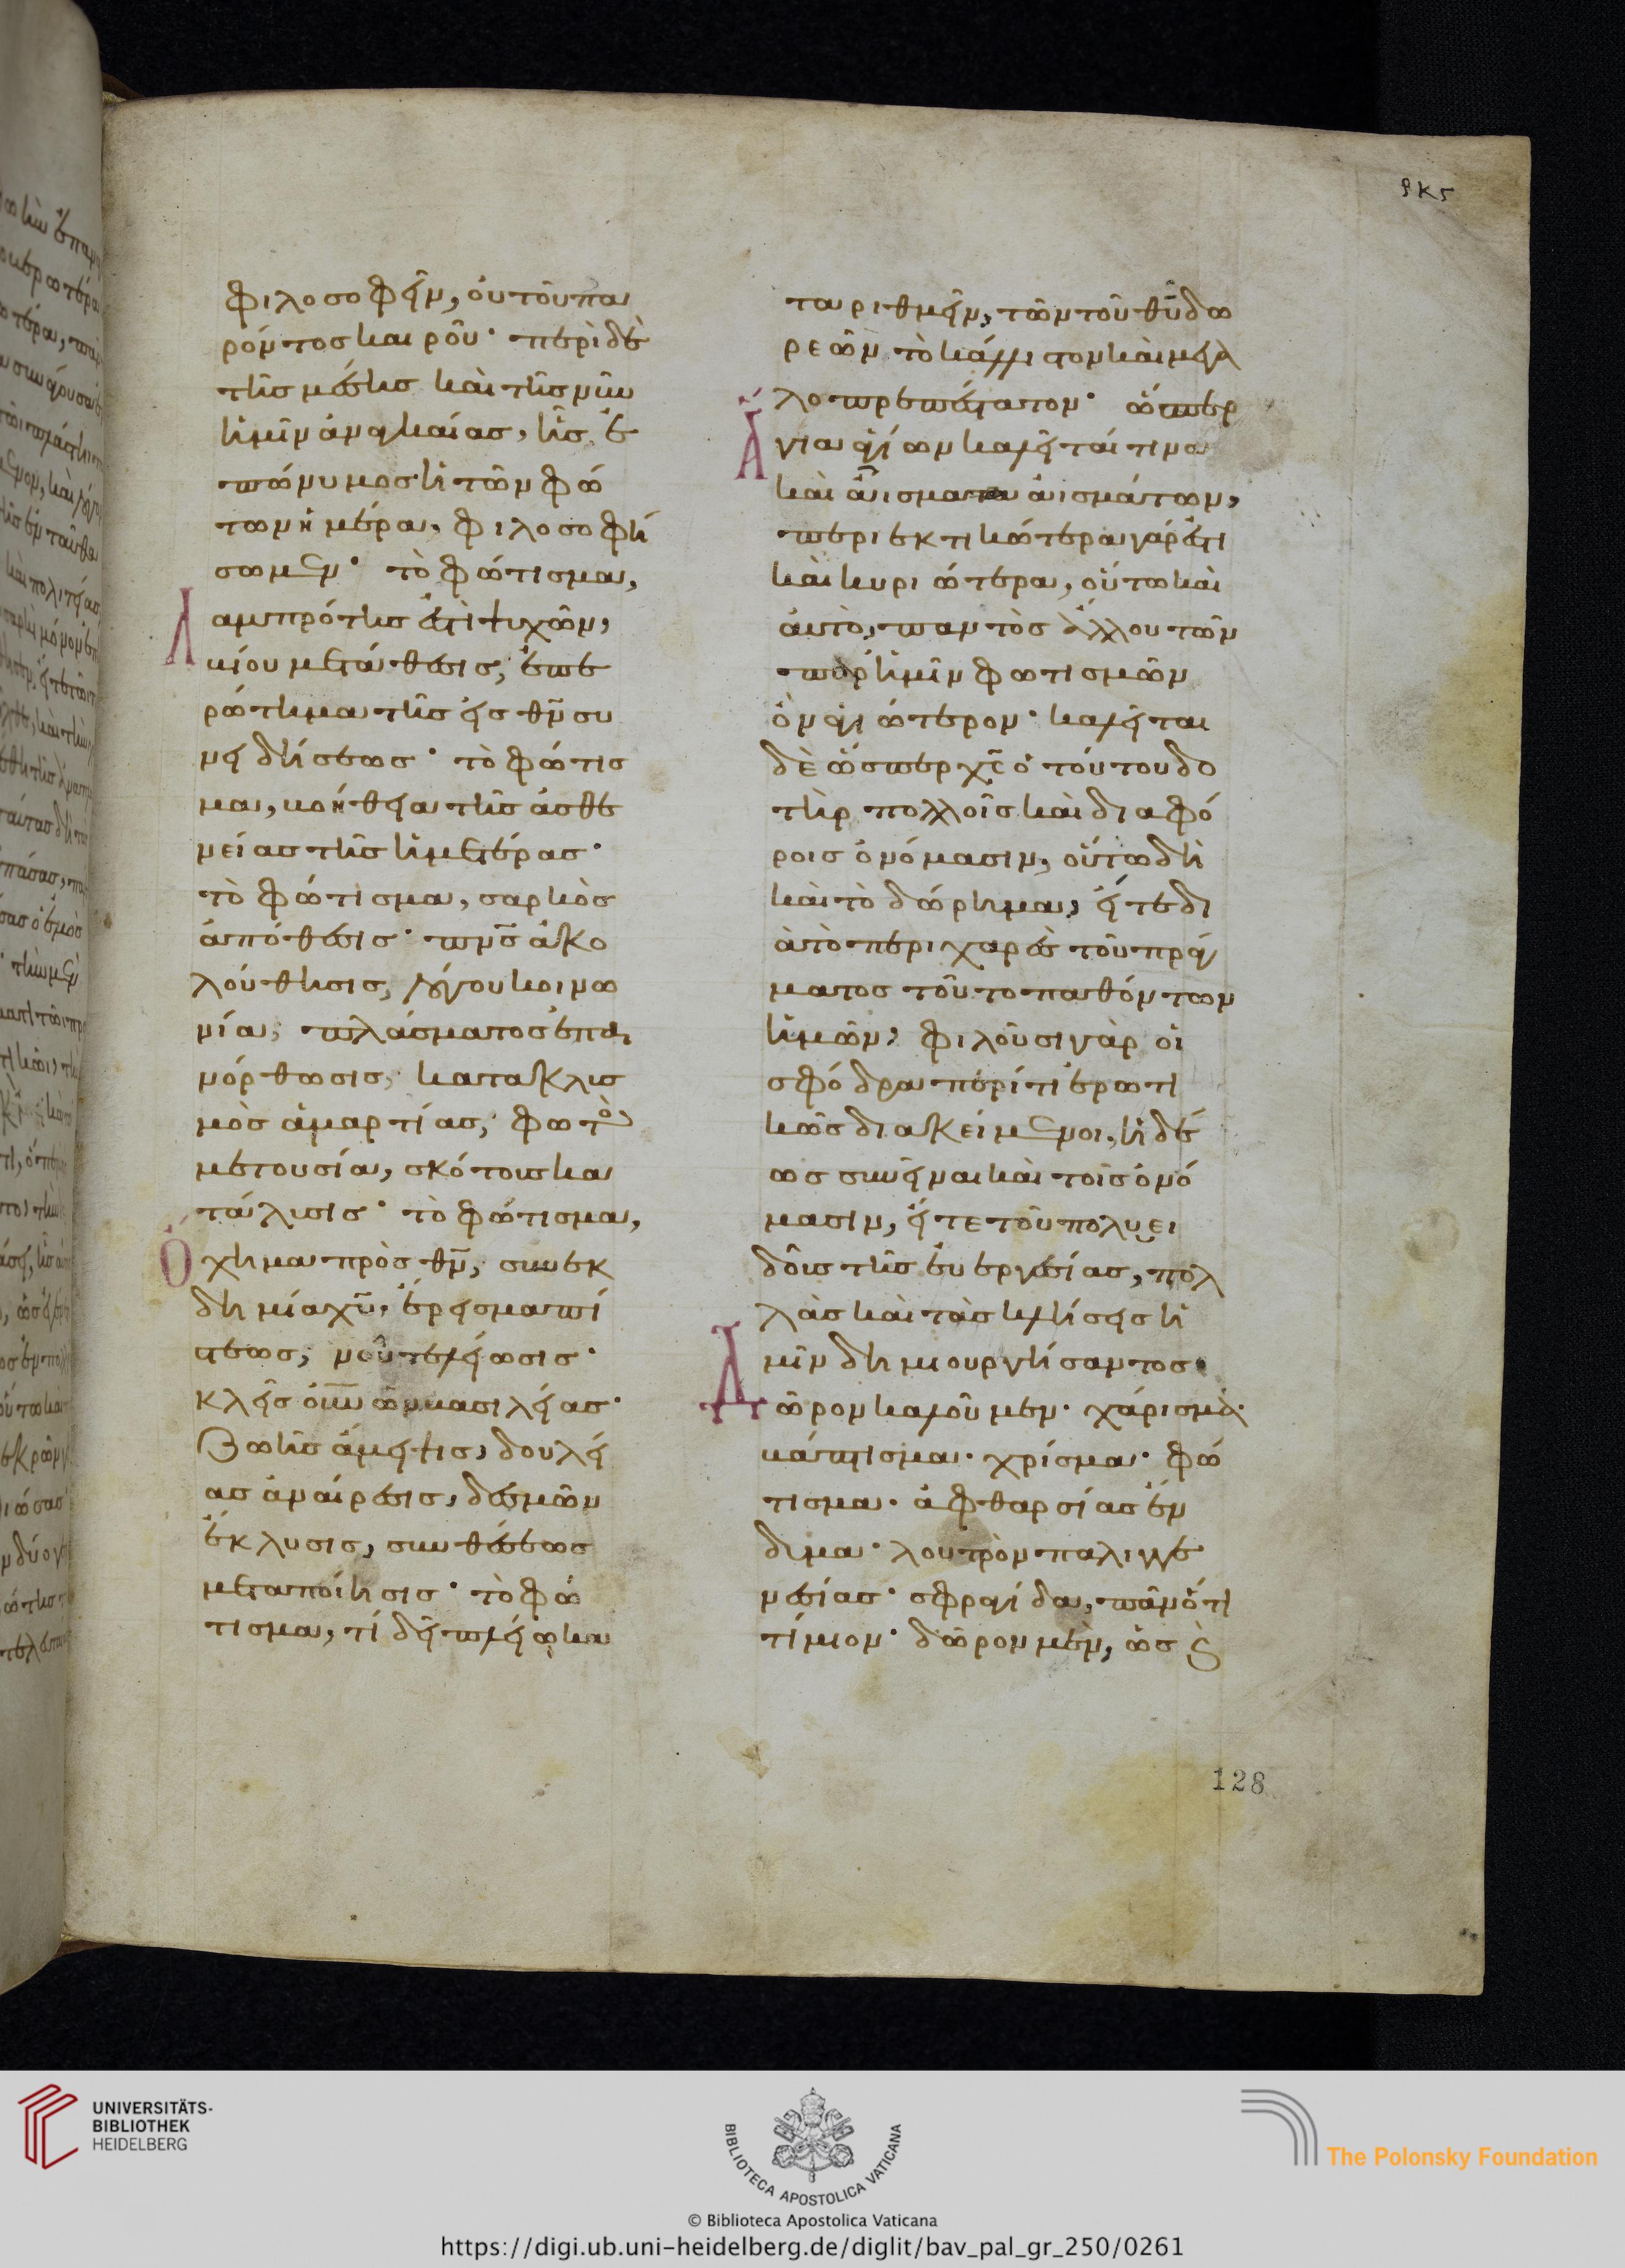 ρκς
φιλοσοφεῖν, οὐ τοῦ πα
ρόντος καιροῦ· περὶ δὲ
τῆς μέσης καὶ τῆς νῦν
ἡμῖν ἀναγκαίας, ἧς ἐ
πώνυμος ἡ τῶν φώ
των ἡμέρα, φιλοσοφή
σωμεν· τὸ φώτισμα,
λαμπρότης ἐστὶ ψυχῶν,
βίου μετάθεσις, ἐπε
ρώτημα τῆς εἰς θν̄ συ
νειδήσεως· τὸ φώτισ
μα, βοήθεια τῆς ἀσθε
νείας τῆς ἡμετέρας·
τὸ φώτισμα, σαρκὸς
ἀπόθεσις· πνς̄ ἀκο
λούθησις, λόγου κοινω
νία, πλάσματος ἐπα
νόρθωσις, κατακλυσ
μὸς ἁμαρτίας, φωτὸς
μετουσία, σκότους κα
τάλυσις· τὸ φώτισμα,
ὄχημα πρὸς θν̄, συνεκ
δημία χῡ, ἔρεισμα πί
στεως, νοῦ τελείωσις·
κλεὶς οὐνῶν βασιλείας·
ζωῆς ἄμειψις, δουλεί
ας ἀναίρεσις, δεσμῶν
ἔκλυσις, συνθέσεως
μεταποίησις· τὸ φώ
τισμα, τί δεῖ πλείω κα
ταριθμεῖν, τῶν τοῦ θῡ δω
ρεῶν τὸ κάλλιστον καὶ μεγα
λοπρεπέστατον· ὥσπερ
ἅγια ἁγίων καλεῖταί τινα
καὶ ᾄσματα ᾀσμάτων,
περιεκτικώτερα γάρ ἐστι
καὶ κυριώτερα, οὕτω καὶ
αὐτὸ, παντὸς ἄλλου τῶν
παρ' ἡμῖν φωτισμῶν
ὂν ἁγιώτερον· καλεῖται
δὲ ὥσπερ χς̄ ὁ τούτου δο
τὴρ πολλοῖς καὶ διαφό
ροις ὀνόμασιν, οὕτω δὴ
καὶ τὸ δώρημα, εἴτε δι
ὰ τὸ περιχαρὲς τοῦ πράγ
ματος τοῦτο παθόντων
ἡμῶν, φιλοῦσι γὰρ οἱ
σφόδρα περί τι ἐρωτι
κῶς διακείμενοι, ἡδέ
ως συνεῖναι καὶ τοῖς ὀνό
μασιν, εἴτε τοῦ πολυει
δοῦς τῆς εὐεργεσίας, πολ
λὰς καὶ τὰς κλήσεις ἡ
μῖν δημιουργήσαντος·
Δῶρον καλοῦμεν· χάρισμα·
βάπτισμα· χρίσμα· φώ
τισμα· ἀφθαρσίας ἔν
δυμα· λουτρὸν παλιγγε
νεσίας· σφραγίδα, πᾶν ὅτι
τίμιον· δῶρον μὲν, ὡς καὶ
128
UNIVERSITÄTS-
BIBLIOTHEK
HEIDELBERG
BIBLIOTECA APOSTOLICA VATICANA
© Biblioteca Apostolica Vaticana
The Polonsky Foundation
https://digi.ub.uni-heidelberg.de/diglit/bav_pal_gr_250/0261